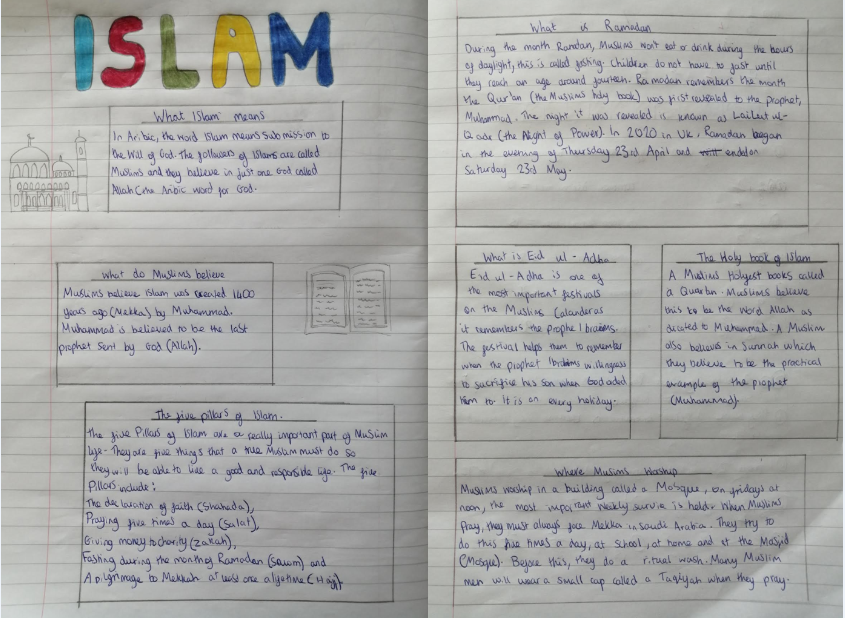 ISLAM
What Islam means
In Aribic, the word Islam means submission to
the will of God. The followers of Islams are called
Muslims and they believe in just one God called
Allah (the Aribic word for God.
What do Muslims believe
Muslims believe islam was created 1400
years ago (Mekka) by Muhammad.
Muhammad is believed to be the last
prophet sent by God (Allah).
The five pillars of Islam.
The five Pillars of Islam are a really important part of Muslim
life - They are five things that a true Muslam must do so
they will be able to live a good and responsible life. The five
Pillars include:
The declaration of faith (Shahada),
Praying five times a day (Salat),
Giving money to charity (Zakah),
Fasting during the month of Ramadan (Sawm) and
A pilgrimage to Mekkah at least once a lifetime (Hajj)
What is Ramadan
During the month Ramdan, Muslims won't eat or drink during the hours
of daylight, this is called fasting. Children do not have to fast until
they reach an age around fourteen. Ramadan remembers the month
the Qur'an (the Muslims holy book) was first revealed to the prophet,
Muhammad. The night it was revealed is known as Lailut ul-
Qadr (the Night of Power). In 2020 in UK, Ramadan began
in the evening of Thursday 23rd April and will ended on
Saturday 23rd May.
What is Eid ul-Adha
Eid ul-Adha is one of
the most important festivals
on the Muslims Calanderas
it remembers the prophe Ibrahims.
The festival helps them to remember
when the prophet Ibrahims willengness
to sacrifice his son when God
him to. It is an every holiday.
The Holy book of Islam
A Muslims Holyest books called
a Quar'an. Muslims believe
this to be the word Allah as
dicated to Muhammad. A Muslim
also believes in Sunnah which
they believe to be the practical
example of the prophet
(Muhammad).
Where Muslims Worship
Muslims worship in a building called a Mosque, on fridays at
noon, the most important weekly survice is held. When Muslims
Pray, they must always face Mekka in Saudi Arabia. They try to
do this five times a day, at School, at home and at the Masjid
(Mosque). Before this, they do a ritual wash. Many Muslim
men will wear a small cap called a Taqiyah when they pray.